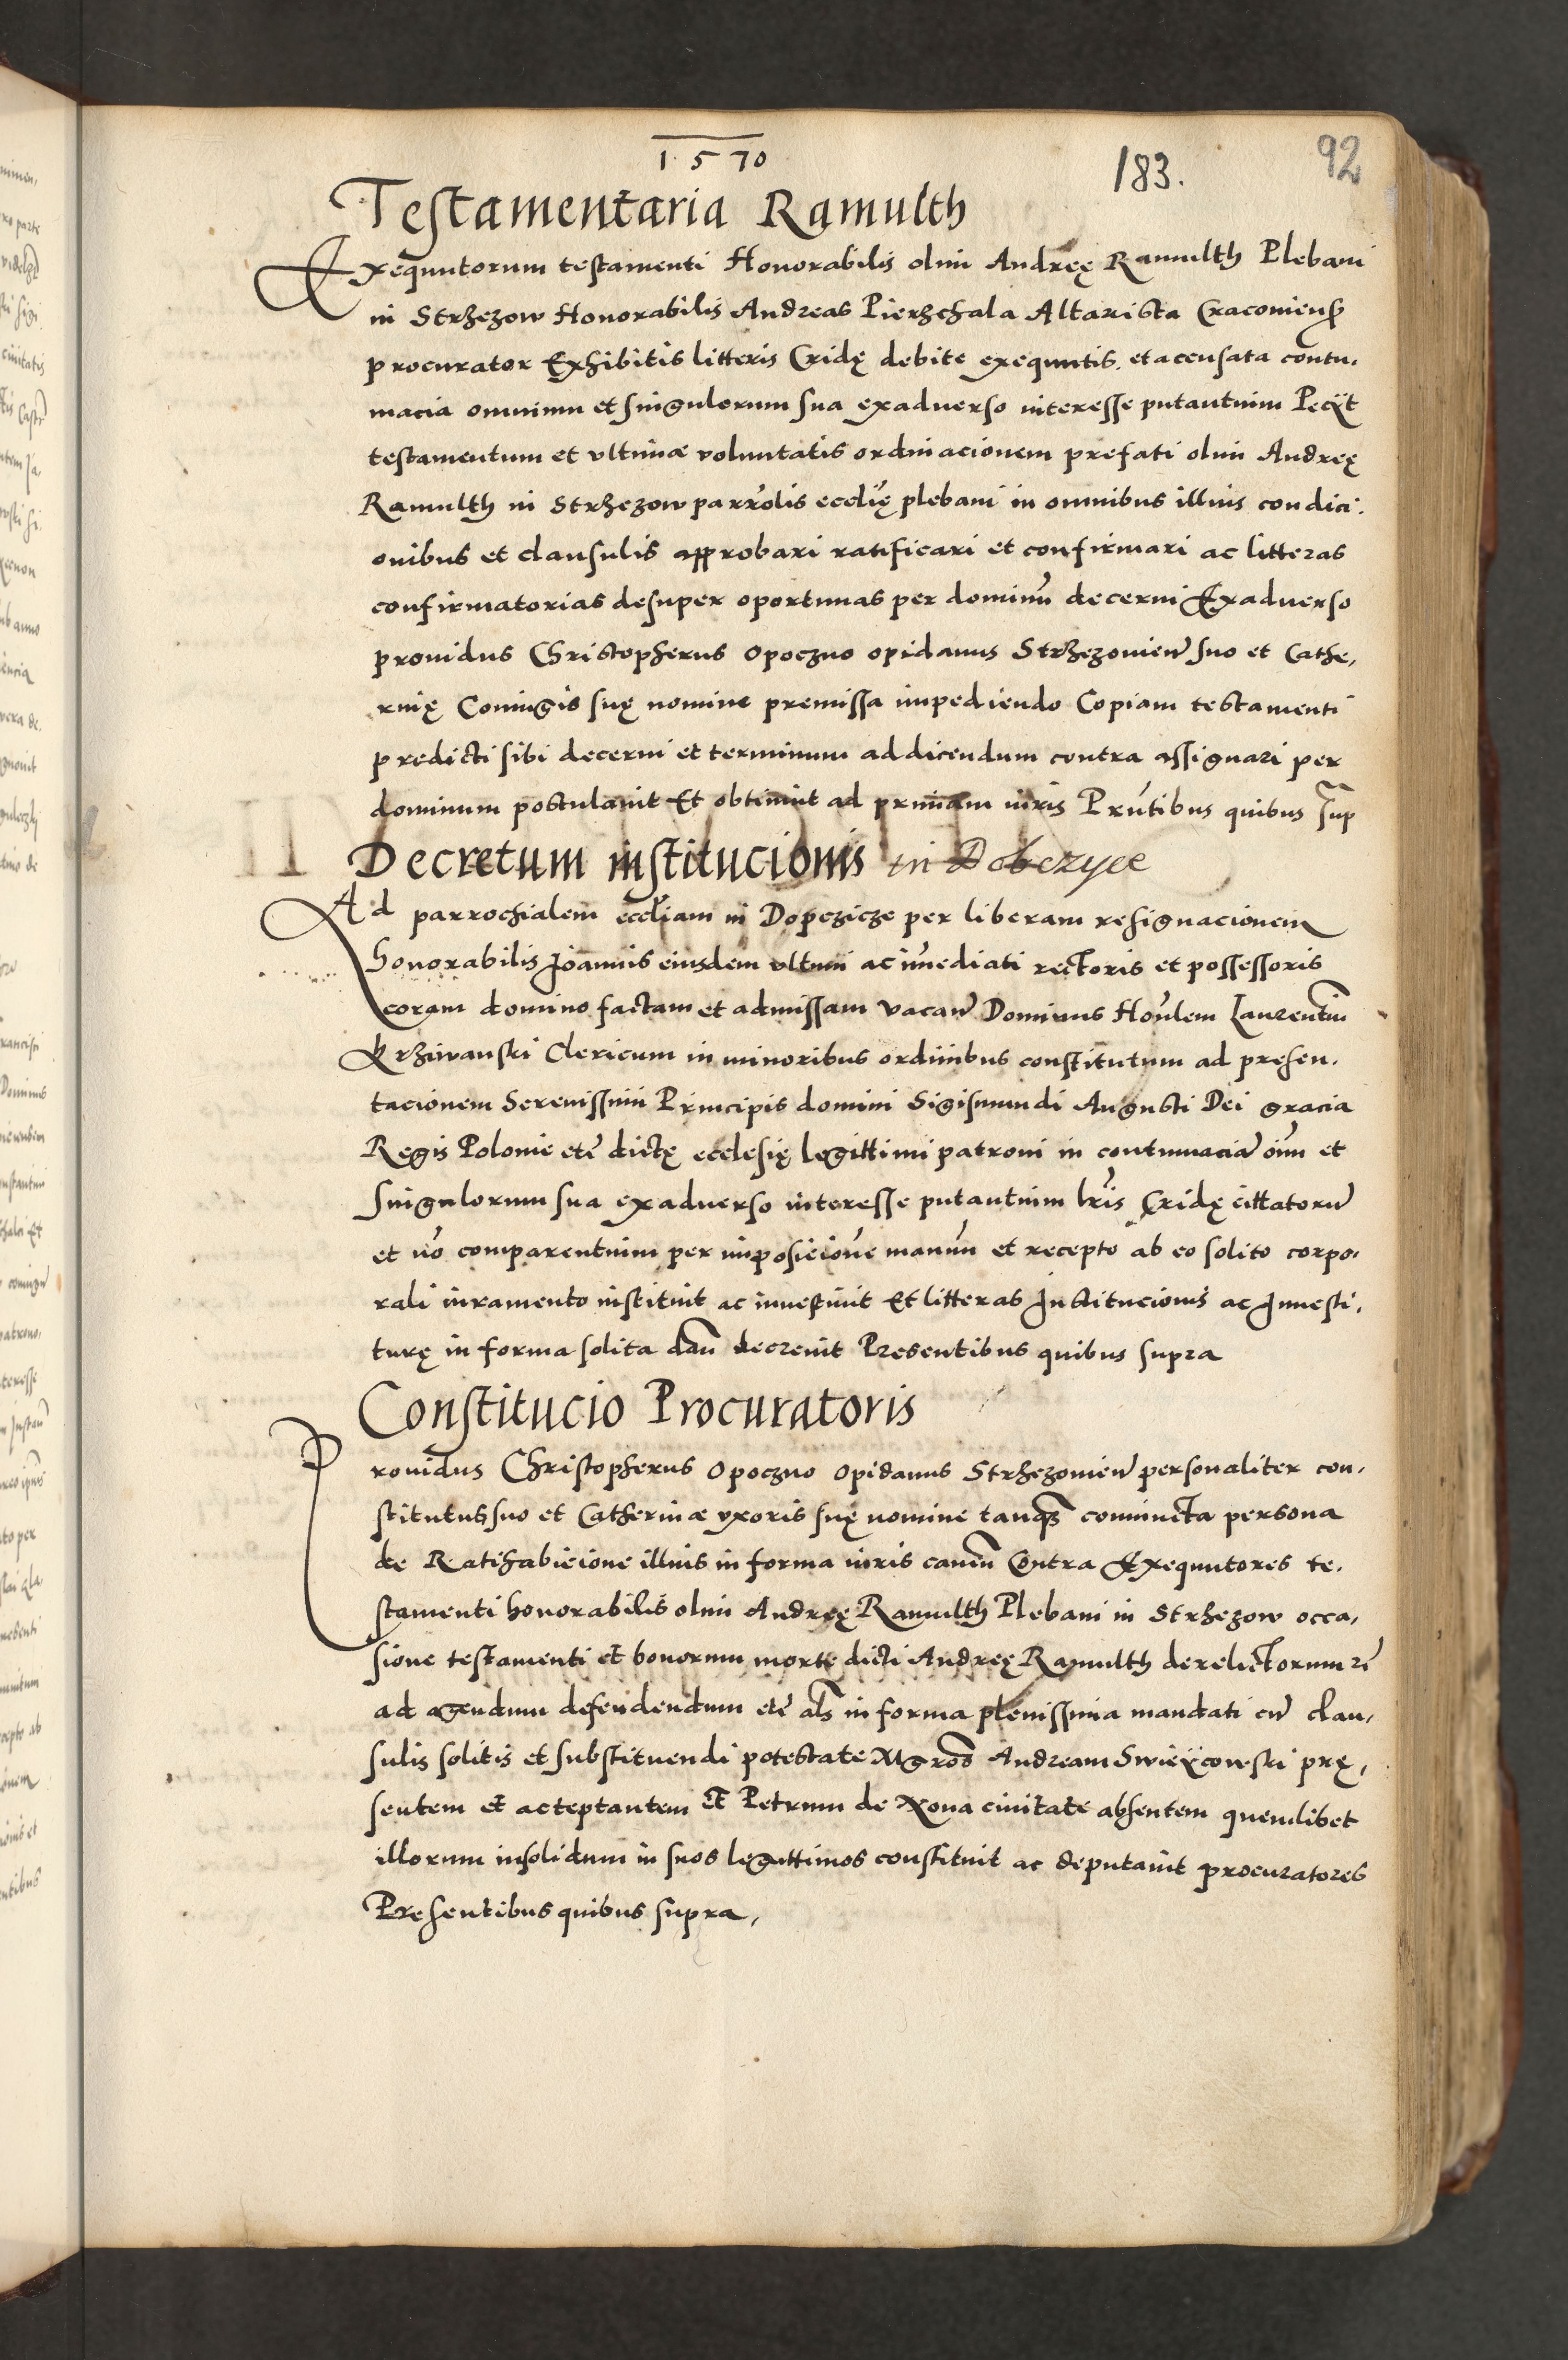 1570
183.
92
Testamentaria Ramulth
Exequutorum testamenti Honorabilis olim Andreę Ramulth Plebani
in Strzezow Honorabilis Andreas Pierzchala Altarista Cracovien̄
procurator Exhibitis litteris Cridę debite exequutis. et accusata contu,
macia omnium et singulorum sua exadverso interesse putantium Petÿt
testamentum et ultimæ voluntatis ordinacionem prefati olim Andreę
Ramulth in Strzezow parrolis ecclię plebani in omnibus illius condici,
onibus et clausulis approbari ratificari et confirmari ac litteras
confirmatorias desuper oportunas per dominū decerni Exadverso
providus Christopherus Opoczno opidanus Strzezovien̄ suo et Cathe,
rinę Coniugis suę nomine premissa impediendo Copiam testamenti
predicti sibi decerni et terminum ad dicendum contra assignari per
dominum postulavit Et obtinuit ad primam iuris Pn̄tibus quibus sup̄
Decretum institucionis in Dobczyce
Ad parrochialem eccliam in Dopczicze per liberam resignacionem
honorabilis Joannis eiusdem ultimi ac im̄ediati rectoris et possessoris
coram domino factam et admissam vacan̄ Dominus Hon̄lem Laurentiū
Krzivanski Clericum in minoribus ordinibus constitutum ad presen,
tacionem Serenissimi Principis domini Sigismundi Augusti Dei gracia
Regis Polonie etc̄ dictę ecclesię legittimi patroni in contumaciā oīm et
singulorum sua exadverso interesse putantium lr̄is Cridę cittatorū
et nō comparentium per imposicionē manuū et recepto ab eo solito corpo,
rali iuramento instituit ac investivit Et litteras Institucionis ac Investi,
turę in forma solita dan̄ decrevit Presentibus quibus supra
Constitucio Procuratoris
Providus Christopherus Opoczno Opidanus Strzezovien̄ personaliter con,
stitutus suo et Catherinæ uxoris suę nomine tanq̄ coniuncta persona
de Ratihabicione illius in forma iuris caven̄ Contra Exequutores te,
stamenti honorabilis olim Andreę Ramulth Plebani in Strzezow occa,
sione testamenti et bonorum morte dicti Andreę Ramulth derelictorum
ad agendum defendendum etc̄ al̄s in forma plenissima mandati cū clau,
sulis solitis et substituendi potestate Mgros̄ Andream Swieÿcowski prę,
sentem et acceptantem et Petrum de Nova civitate absentem quemlibet
illorum insolidum in suos legittimos constituit ac deputavit procuratores
Presentibus quibus supra,